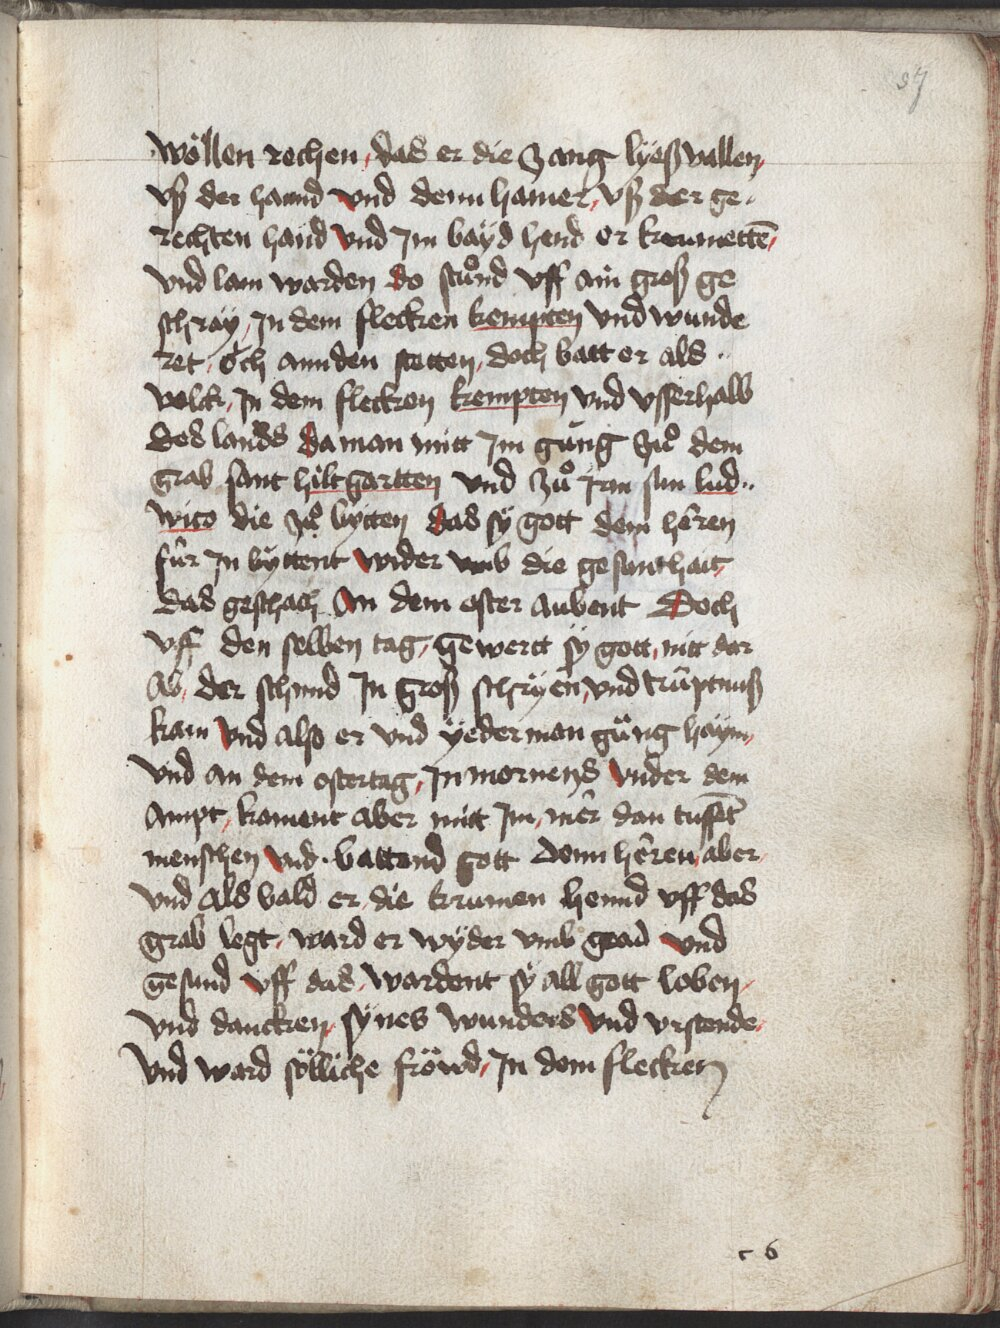 37
wöllen rechen, das er die zang lyeß vallen,
vß der hannd vnd denn hamer, vß der ge-
rechten hand vnd Im bayd hend er krummettē,
vnd lam warden do stůnd vff ain groß ge
schray, In dem flecken kempten vnd wunde
ret, och an den stetten, doch batt er als
volck, In dem flecken kempten vnd vsserhalb
des lands da man mitt Im gung zů dem
grab sant hiltgartten vnd zů irm sun lud-
wico die zů bytten das sy gott dem heren
für In byttent wider vmb die gesunthait,
das geschach An dem oster aubent Doch
vff den selben tag, gewert sy gott, nitt dar
Ab, der schmid In groß schryen, vnd trüptnuß
kam vnd also er vnd yederman gung haym,
vnd an dem ostertag, In mornens vnder dem
Ampt, kament aber mitt Im, mer dan tussēt
menschen vnd battend gott denn heren, aber
vnd als bald er, die krumen hennd vff das
grab legt, ward er wyder vmb grad vnd
gesund vff das, wardent sy all gott loben,
vnd dancken, synes wunders vnd vrstende,
vnd ward sölliche fröwd, In dem flecken
c 6